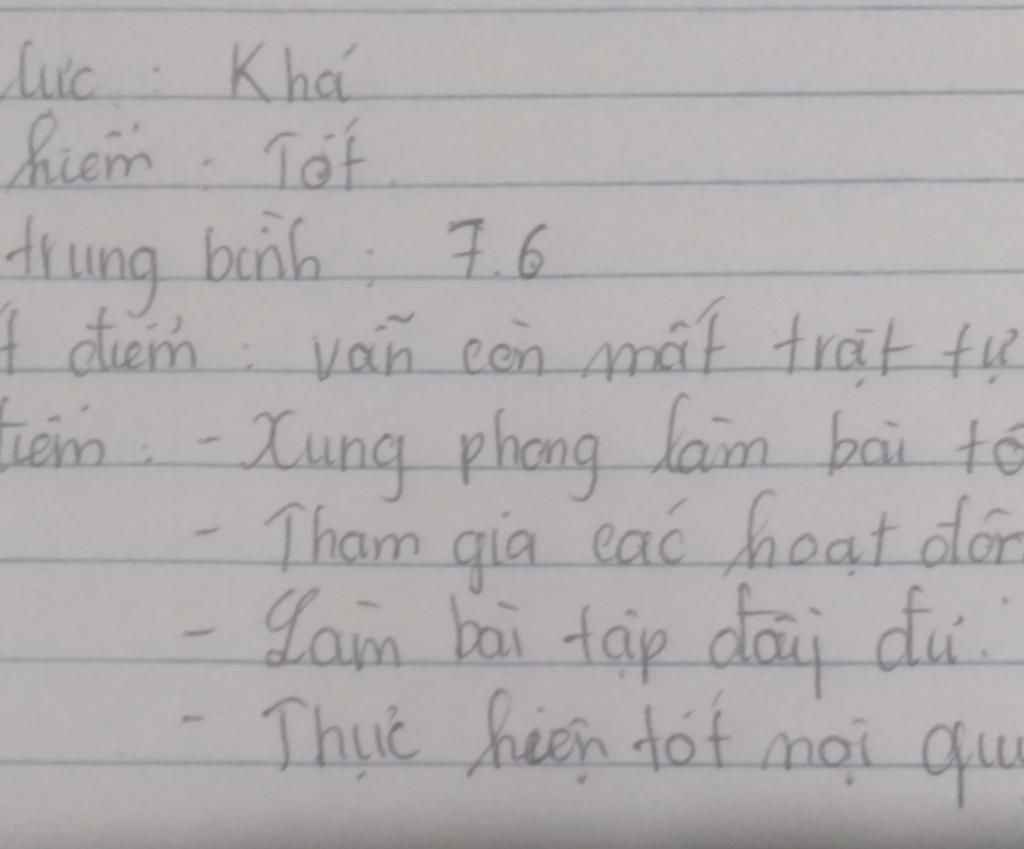 lực : Khá
kiểm : Tốt
trung bình : 7.6
t điểm : vẫn còn mất trật tự
tiêm : - Xung phong làm bài tố
- Tham gia các hoạt độn
- Làm bài tập đầy đủ.
- Thực hiện tốt mọi qu